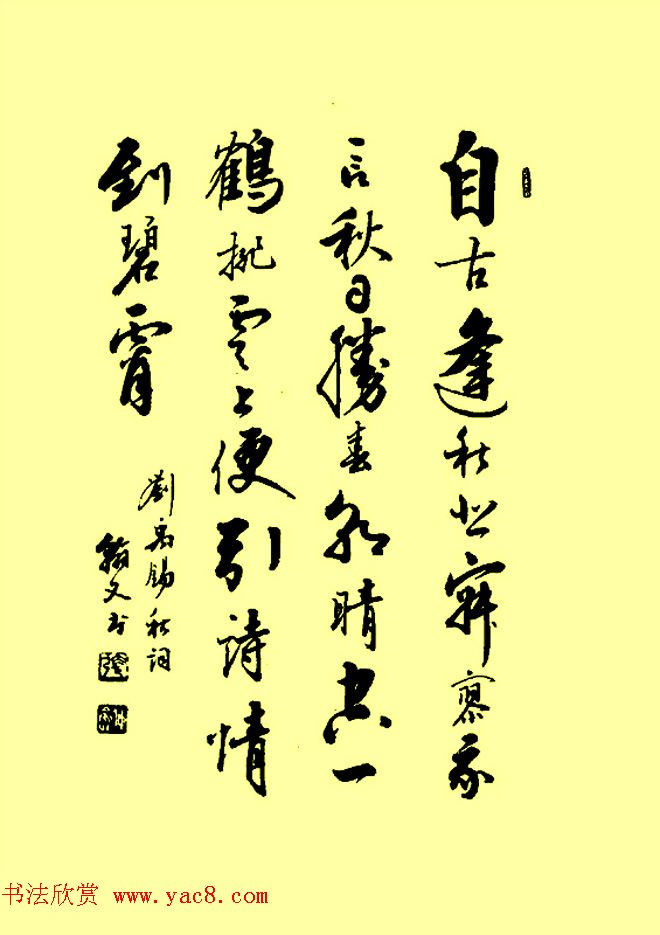 自古逢秋悲寂寥我
言秋日勝春朝晴空一
鶴排雲上便引詩情
到碧霄
劉禹錫秋詞
翰文书
书法欣赏 www.yac8.com